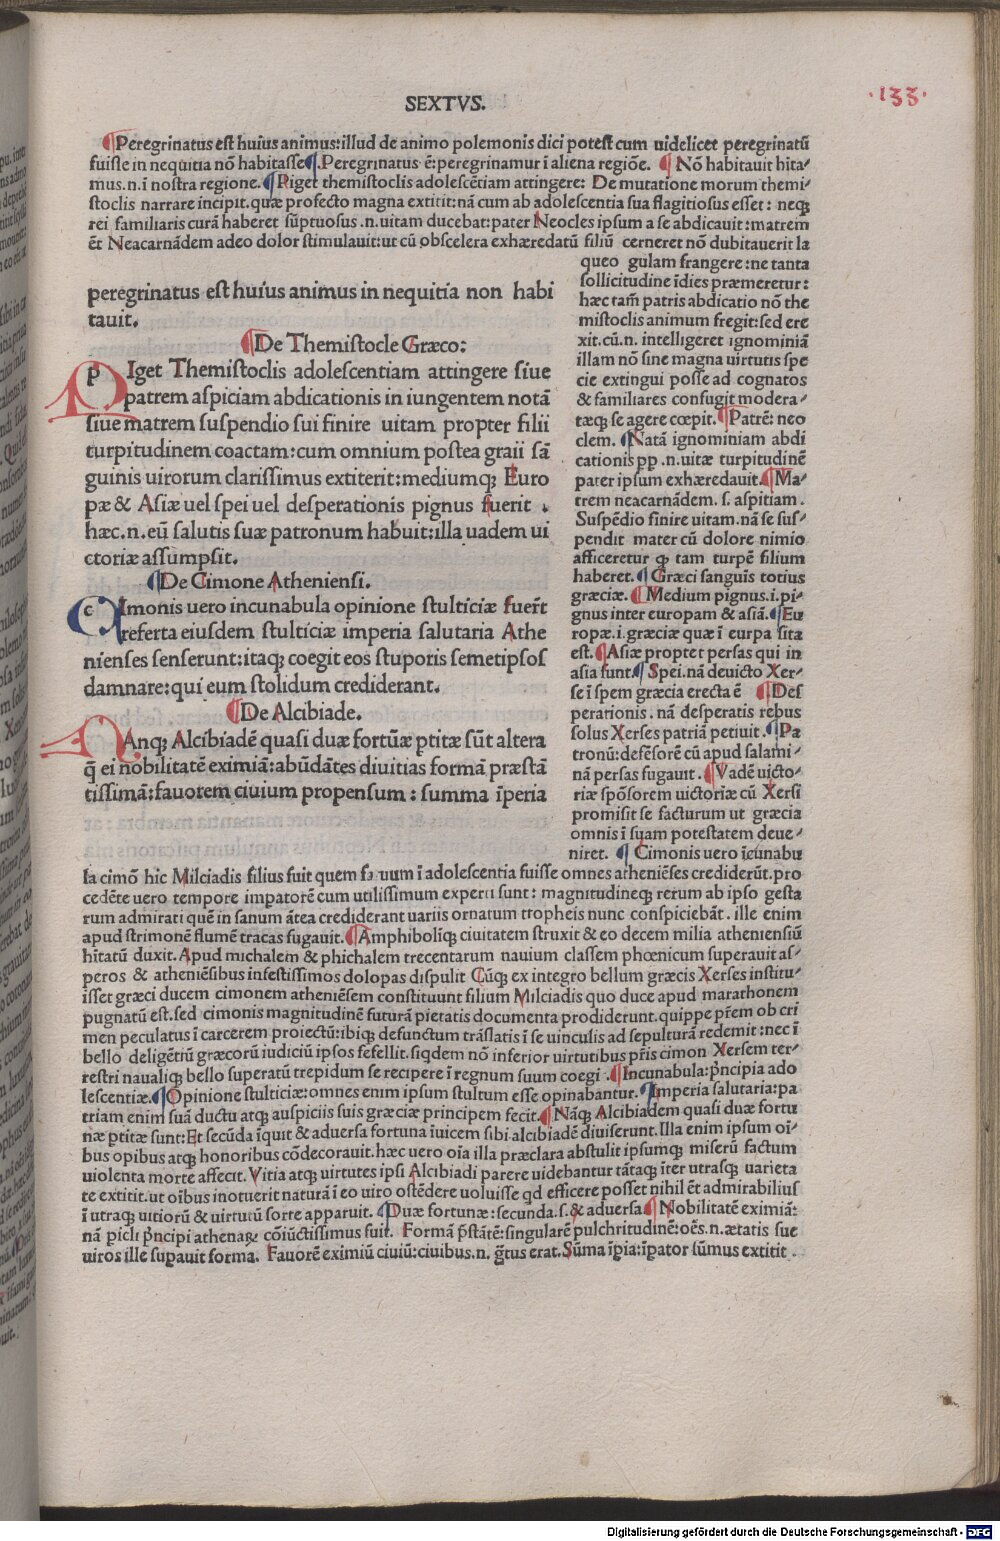 SEXTVS.
·133·
¶Peregrinatus est huius animus:illud de animo polemonis dici potest cum uidelicet peregrinatū
fuisse in nequitia nō habitasse¶.Peregrinatus ē:peregrinamur ī aliena regiōe. ¶ Nō habitauit hīta/
mus.n.ī nostra regione.¶Piget themistoclis adolescētiam attingere: De mutatione morum themi/
stoclis narrare incipit.quæ profecto magna extitit:nā cum ab adolescentia sua flagitiosus esset: neq;
rei familiaris curā haberet sūptuosus .n.uitam ducebat:pater Neocles ipsum a se abdicauit:matrem
ēt Neacarnādem adeo dolor stimulauit:ut cū obscelera exhæredatū filiū cerneret nō dubitauerit la
queo gulam frangere:ne tanta
sollicitudine īdies præmeretur:
hæc tam̄ patris abdicatio nō the
mistoclis animum fregit:sed ere
xit.cū.n. intelligeret ignominiā
illam nō sine magna uirtutis spe
cie extingui posse ad cognatos
& familiares confugit modera/
tæq; se agere cœpit.¶Patrē: neo
clem. ¶Natā ignominiam abdi
cationis pp .n.uitæ turpitudinē
pater ipsum exhæredauit.¶Ma/
trem neacarnādem. s. aspitiam.
Suspēdio finire uitam.nā se sus/
pendit mater cū dolore nimio
afficeretur q̄ tam turpē filium
haberet.¶ Græci sanguīs totius
græciæ. ¶ Medium pignus.i.pi/
gnus inter europam & asiā.¶Eu
ropæ.i.græciæ quæ ī eurpa sita
est.¶Asiæ propter persas qui in
asia sunt.¶ Spei.nā deuicto Xer/
se ī spem græcia erecta ē ¶Des
perationis. nā desperatis rebus
solus Xerses patriā petiuit .¶Pa
tronū:defēsorē cū apud salami/
nā persas fugauit .¶Vadē uicto/
riæ spōsorem uictoriæ cū Xersi
promisit se facturum ut græcia
omnis ī suam potestatem deue/
niret. ¶ Cimonis uero īcunabu
peregrinatus est huius animus in nequitia non habi
tauit.
¶De Themistocle Græco:
pIget Themistoclis adolescentiam attingere siue
patrem aspiciam abdicationis in iungentem notā
siue matrem suspendio sui finire uitam propter filii
turpitudinem coactam:cum omnium postea graii sā
guinis uirorum clarissimus extiterit:mediumq; Euro
pæ & Asiæ uel spei uel desperationis pignus fuerit .
hæc.n.eū salutis suæ patronum habuit:illa uadem ui
ctoriæ assumpsit.
¶De Cimone Atheniensi.
cImonis uero incunabula opinione stulticiæ fuer̄t
referta eiusdem stulticiæ imperia salutaria Athe
nienses senserunt:itaq; coegit eos stuporis semetipsos
damnare:qui eum stolidum crediderant.
¶De Alcibiade.
NAnq; Alcibiadē quasi duæ fortūæ ptitæ sūt altera
q̄ ei nobilitatē eximiā:abūdātes diuitias formā præstā
tissimā:fauorem ciuium propensum : summa īperia
la cimō hic Milciadis filius fuit quem uum ī adolescentia fuisse omnes atheniēses crediderūt.pro
cedēte uero tempore impatorē cum utilissimum experti sunt: magnitudineq; rerum ab ipso gesta
rum admirati quē in sanum ātea crediderant uariis ornatum tropheis nunc conspiciebāt. ille enim
apud strimonē flumē tracas fugauit.¶Amphiboliq; ciuitatem struxit & eo decem milia atheniensiū
hītatū duxit.Apud michalem & phichalem trecentarum nauium classem phœnicum superauit as/
peros & atheniēsibus infestissimos dolopas dispulit Cūq; ex integro bellum græcis Xerses institu/
isset græci ducem cimonem atheniēsem constituunt filium Milciadis quo duce apud marathonem
pugnatū est.sed cimonis magnitudinē futurā pietatis documenta prodiderunt.quippe pr̄em ob cri
men peculatus ī carcerem proiectū:ibiq; defunctum trāslatis ī se uinculis ad sepulturā redemit :nec ī
bello deligētiū græcorū iudiciū ipsos fefellit.siqdem nō inferior uirtutibus pr̄is cimon Xersem ter/
restri naualiq; bello superatū trepidum se recipere ī regnum suum coegi .¶Incunabula:pncipia ado
lescentiæ.¶Opinione stulticiæ:omnes enim ipsum stultum esse opinabantur.¶Imperia salutaria:pa
triam enim suā ductu atq; auspiciis suis græciæ principem fecit.¶Nāq; Alcibiadem quasi duæ fortu
næ ptitæ sunt:Et secūda īquit & aduersa fortuna iuicem sibi alcibiadē diuiserunt.Illa enim ipsum oī/
bus opibus atq; honoribus cōdecorauit.hæc uero oīa illa præclara abstulit ipsumq; miserū factum
uiolenta morte affecit. Vitia atq; uirtutes ipsi Alcibiadi parere uidebantur tātaq; īter utrasq; uarieta
te extitit.ut oībus inotuerit naturā ī eo uiro ostēdere uoluisse qd efficere posset nihil ēt admirabilius
ī utraq; uitiorū & uirtutū sorte apparuit. ¶Duæ fortunæ:secunda.s.& aduersa¶ Nobilitatē eximiā:
nā picli pncipi athenaꝝ cōiūctissimus fuit. Formā pstātē:singularē pulchritudinē:oēs.n.ætatis sue
uiros ille supauit forma. Fauorē eximiū ciuiū:ciuibus.n. gtus erat.Sūma īpia:īpator sūmus extitit .
Digitalisierung gefördert durch die Deutsche Forschungsgemeinschaft - DFG